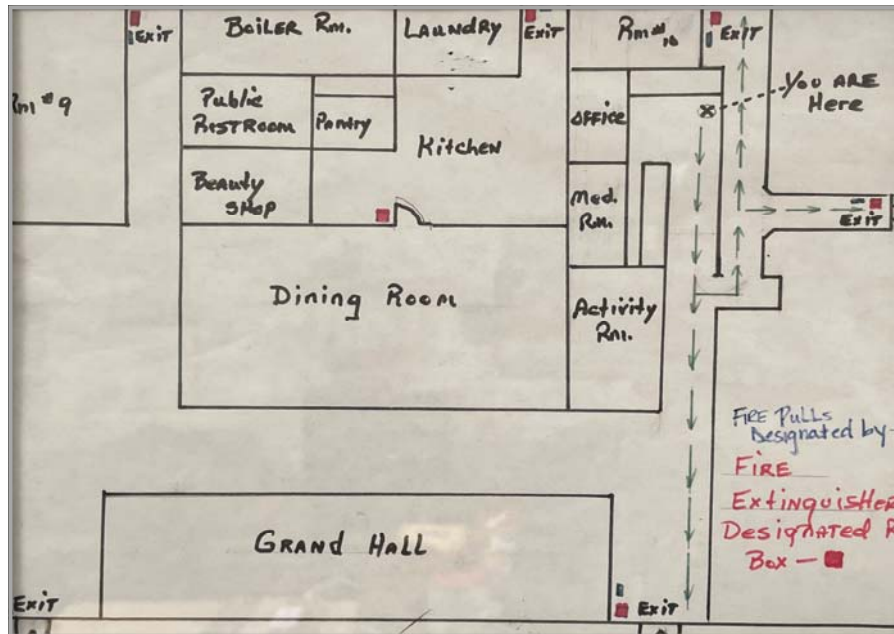 EXIT
BOILER RM.
LAUNDRY
EXIT
Rm#16
EXIT
YOU ARE
Here
Rm#9
Public
RESTROOM
Pantry
Kitchen
OFFICE
Beauty
SHOP
Med.
Rm.
EXIT
Dining Room
Activity
Rm.
FIRE PULLS
Designated by-
FIRE
ExtinguisHER
Designated R
Box —
GRAND HALL
EXIT
EXIT